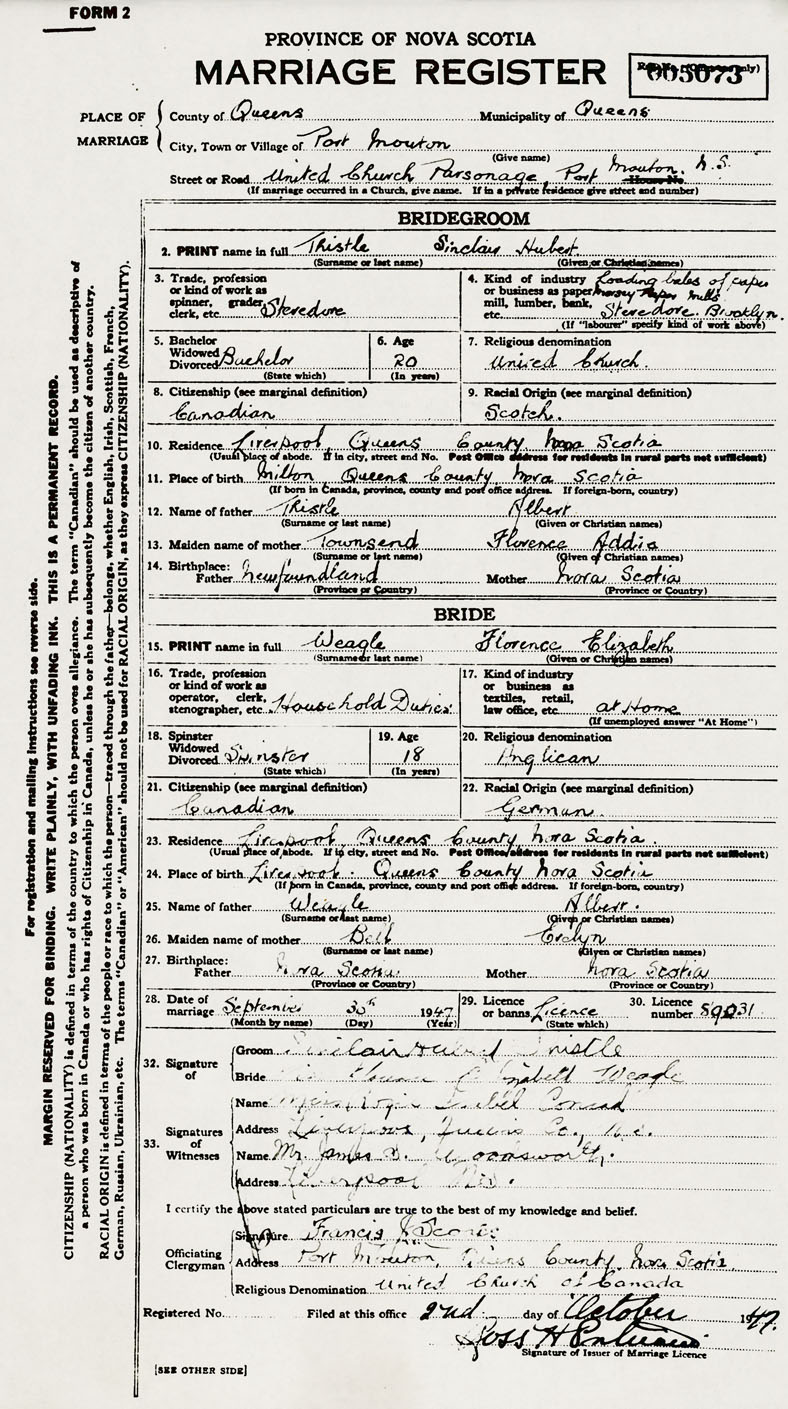 FORM 2
PROVINCE OF NOVA SCOTIA
MARRIAGE REGISTER
005073
PLACE OF MARRIAGE
County of Queens Municipality of Queens
City, Town or Village of Port Mouton
(Give name)
Street or Road United Church Parsonage, Port Mouton. N.S.
House No.
(If marriage occurred in a Church, give name. If in a private residence give street and number)
BRIDEGROOM
2. PRINT name in full Thistle Sinclair Hubert
(Surname or last name) (Given or Christian names)
3. Trade, profession or kind of work as spinner, grader, clerk, etc. Stevedore
4. Kind of industry or business as paper mill, lumber, bank, etc. Loading bales of paper Mersey Paper Mills Stevedore. Brooklyn.
(If "labourer" specify kind of work above)
5. Bachelor Widowed Divorced Bachelor
(State which)
6. Age 20
(In years)
7. Religious denomination
United Church.
8. Citizenship (see marginal definition)
Canadian
9. Racial Origin (see marginal definition)
Scotch.
10. Residence Liverpool, Queens County Nova Scotia
(Usual place of abode. If in city, street and No. Post Office address for residents in rural parts not sufficient)
11. Place of birth Milton Queens County, Nova Scotia
(If born in Canada, province, county and post office address. If foreign-born, country)
12. Name of father Thistle Albert
(Surname or last name) (Given or Christian names)
13. Maiden name of mother Townsend Florence Addie
(Surname or last name) (Given or Christian names)
14. Birthplace:
Father Newfoundland Mother Nova Scotia
(Province or Country) (Province or Country)
BRIDE
15. PRINT name in full Weagle Florence Elizabeth
(Surname or last name) (Given or Christian names)
16. Trade, profession or kind of work as operator, clerk, stenographer, etc. Household Duties.
17. Kind of industry or business as textiles, retail, law office, etc. at Home
(If unemployed answer "At Home")
18. Spinster Widowed Divorced Spinster
(State which)
19. Age 18
(In years)
20. Religious denomination
Anglican
21. Citizenship (see marginal definition)
Canadian
22. Racial Origin (see marginal definition)
German.
23. Residence Liverpool Queens County Nova Scotia.
(Usual place of abode. If in city, street and No. Post Office address for residents in rural parts not sufficient)
24. Place of birth Liverpool. Queens County Nova Scotia
(If born in Canada, province, county and post office address. If foreign-born, country)
25. Name of father Weagle Albert.
(Surname or last name) (Given or Christian names)
26. Maiden name of mother Bell Evelyn
(Surname or last name) (Given or Christian names)
27. Birthplace:
Father Nova Scotia. Mother Nova Scotia
(Province or Country) (Province or Country)
28. Date of marriage September 30th 1947
(Month by name) (Day) (Year)
29. Licence or banns Licence
(State which)
30. Licence number 59031
32. Signature of
Groom Sinclair Hubert Thistle
Bride Florence Elizabeth Weagle
33. Signatures of Witnesses
Name Isabel Conrad
Address Liverpool, Queens Co., N.S.
Name Mr. James D. Woodsworth.
Address Liverpool N.S.
I certify the above stated particulars are true to the best of my knowledge and belief.
Officiating Clergyman
Signature Francis
Address Port Mouton, Queens County, Nova Scotia.
Religious Denomination United Church of Canada
Registered No. Filed at this office 2nd day of October 1947.
Ross H
Signature of Issuer of Marriage Licence
[SEE OTHER SIDE]
For registration and mailing instructions see reverse side.
MARGIN RESERVED FOR BINDING. WRITE PLAINLY, WITH UNFADING INK. THIS IS A PERMANENT RECORD.
CITIZENSHIP (NATIONALITY) is defined in terms of the country to which the person owes allegiance. The term "Canadian" should be used as descriptive of
a person who was born in Canada or who has rights of Citizenship in Canada, unless he or she has subsequently become the citizen of another country.
RACIAL ORIGIN is defined in terms of the people or race to which the person—traced through the father—belongs, whether English, Irish, Scottish, French,
German, Russian, Ukrainian, etc. The terms "Canadian" or "American" should not be used for RACIAL ORIGIN, as they express CITIZENSHIP (NATIONALITY).